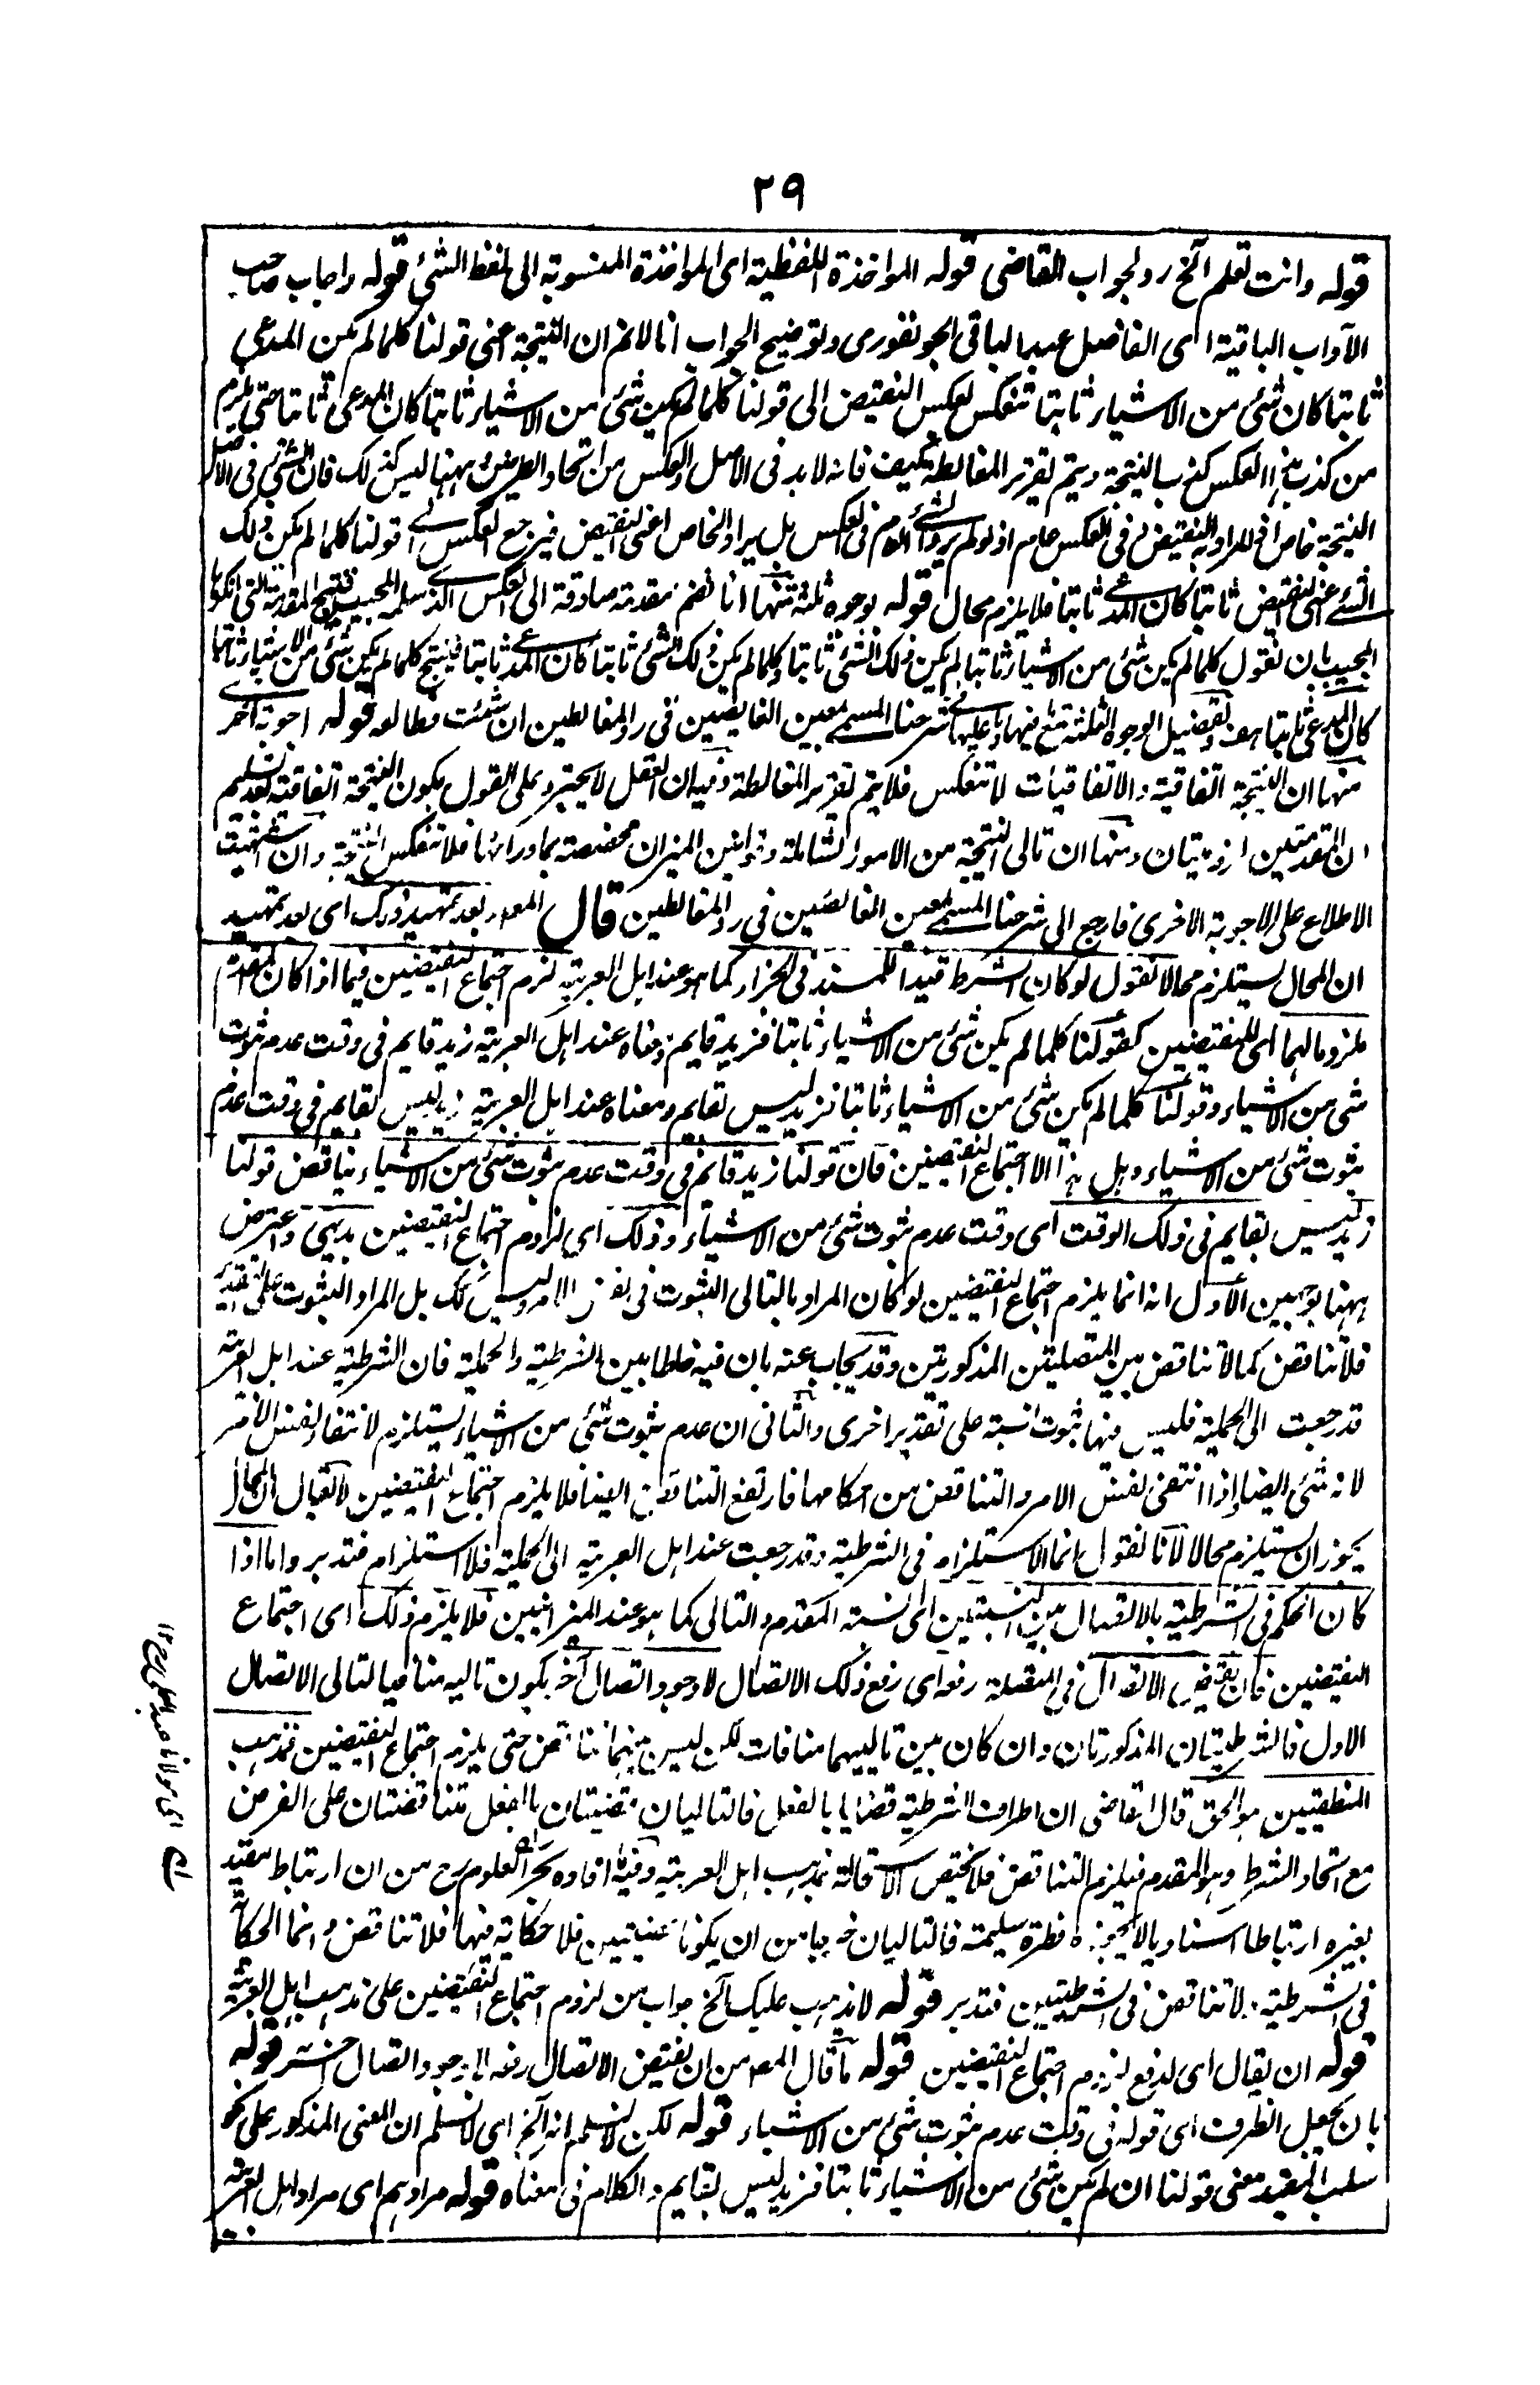 ٢٩
قوله وانت تعلم آلخ رد لجواب القاضى قوله المواخذة اللفظية اى المواخذة المنسوبة الى لفظ الشئ قوله واجاب صاحب
الآداب الباقية اى الفاضل عبد الباقى الجونفورى وتوضيح الجواب انا لا نم ان النتيجة اعنى قولنا كلما لم يكن المدعى
ثابتا كان شئ من الاشياء ثابتا تنعكس بعكس النقيض الى قولنا كلما لم يكن شئ من الاشياء ثابتا كان المدعى ثابتا حتى يلزم
من كذب هذا العكس كذب النتيجة ويتم تقرير المغالطة كيف فانه لا بد فى الاصل والعكس من اتحاد الطرفين وههنا ليس كذلك فان الشئ فى الاصل
النتيجة خاص اذ المراد به النقيض وفى العكس عام اذ لو لم يرد الشئ العام فى العكس بل يراد الخاص اعنى النقيض فيرجع العكس الى قولنا كلما لم يكن ذلك
الشئ اعنى النقيض ثابتا كان المدعى ثابتا فلا يلزم محال قوله بوجوه ثلثة منها انا نضم مقدمة صادقة الى العكس الذى سلمه المجيب فينتج المقدمة التى انكرها
المجيب بان نقول كلما لم يكن شئ من الاشياء ثابتا لم يكن ذلك الشئ ثابتا وكلما لم يكن ذلك الشئ ثابتا كان المدعى ثابتا فينتج كلما لم يكن شئ من الاشياء ثابتا
كان المدعى ثابتا هف وتفصيل الوجوه الثلثة مع ما فيها وما عليها فى شرحنا المسمى بمعين الغايصين فى رد المغالطين ان شئت فطالعه قوله اجوبة اخر
منها ان النتيجة اتفاقية والاتفاقيات لا تنعكس فلا يتم تقرير المغالطة وفيه ان العقل لا يجترء على القول بكون النتيجة اتفاقية بعد تسليم
ان المقدمتين لزوميتان ومنها ان تالى النتيجة من الامور الشاملة وقوانين الميزان مخصصة بما ورائها فلا تنعكس النتيجة وان اشتهيت
الاطلاع على الاجوبة الاخرى فارجع الى شرحنا المسمى بمعين الغايصين فى رد المغالطين قال المص بعد تمهيد ذلك اى بعد تمهيد
ان المحال يستلزم محالا نقول لو كان الشرط قيدا للمسند فى الجزاء كما هو عند اهل العربية لزم اجتماع النقيضين فيما اذا كان المقدم
ملزوما لهما اى للنقيضين كقولنا كلما لم يكن شئ من الاشياء ثابتا فزيد قايم ومعناه عند اهل العربية زيد قايم فى وقت عدم ثبوت
شئ من الاشياء وقولنا كلما لم يكن شئ من الاشياء ثابتا فزيد ليس بقايم ومعناه عند اهل العربية زيد ليس بقايم فى وقت عدم
ثبوت شئ من الاشياء وهل هذا الا اجتماع النقيضين فان قولنا زيد قائم فى وقت عدم ثبوت شئ من الاشياء يناقض قولنا
زيد ليس بقايم فى ذلك الوقت اى وقت عدم ثبوت شئ من الاشياء وذلك اى لزوم اجتماع النقيضين بديهى واعترض
ههنا بوجهين الاول انه انما يلزم اجتماع النقيضين لو كان المراد بالتالى الثبوت فى نفس الامر وليس كذلك بل المراد الثبوت على تقدير
فلا تناقض كما لا تناقض بين المتصلتين المذكورتين وقد يجاب عنه بان فيه خلطا بين الشرطية والحملية فان الشرطية عند اهل العربية
قد رجعت الى الحملية فليس فيها ثبوت نسبة على تقدير اخرى والثانى ان عدم ثبوت شئ من الاشياء يستلزم لانتفاء نفس الامر
لانه شئ ايضا واذا انتفى نفس الامر والتناقض من احكامها فارتفع التناقض ايضا فلا يلزم اجتماع النقيضين لا يقال ان المحال
يجوز ان يستلزم محالا لانا نقول انما الاستلزام فى الشرطية وقد رجعت عند اهل العربية الى الحملية فلا استلزام فتدبر واما اذا
كان الحكم فى الشرطية بالاتصال بين النسبتين اى نسبة المقدم والتالى كما هو عند الميزانيين فلا يلزم ذلك اى اجتماع
النقيضين فان نقيض الاتصال فى المتصلة رفعه اى رفع ذلك الاتصال لا وجود اتصال آخر يكون تاليه منافيا لتالى الاتصال
الاول فالشرطيتان المذكورتان وان كان بين تالييهما منافات لكن ليس بينهما تناقض حتى يلزم اجتماع النقيضين فمذهب
المنطقيين هو الحق قال القاضى ان اطراف الشرطية قضايا بالفعل فالتاليان قضيتان بالفعل متناقضتان على الفرض
مع اتحاد الشرط وهو المقدم فيلزم التناقض فلا تختص الاستحالة بمذهب اهل العربية وفيه ما افاده بحر العلوم رح من ان ارتباط مقيد
بغيره ارتباطا اسناديا لا يجوزه فطرة سليمة فالتاليان خرجا من ان يكونا قضيتين فلا حكاية فيها فلا تناقض وانما الحكاية
فى الشرطية ولا تناقض فى الشرطيتين فتدبر قوله لا يذهب عليك آلخ جواب من لزوم اجتماع النقيضين على مذهب اهل العربية
قوله ان يقال اى لدفع لزوم اجتماع النقيضين قوله ما قال المص من ان نقيض الاتصال رفعه لا وجود اتصال اخر قوله
بان يجعل الظرف اى قوله فى وقت عدم ثبوت شئ من الاشياء قوله لكن لا نسلم انه آلخ اى لا نسلم ان المعنى المذكور على نحو
سلب المقيد معنى قولنا ان لم يكن شئ من الاشياء ثابتا فزيد ليس بقايم والكلام فى معناه قوله مرادهم اى مراد اهل العربية
له اى مولانا عبد العلى رح ١٢